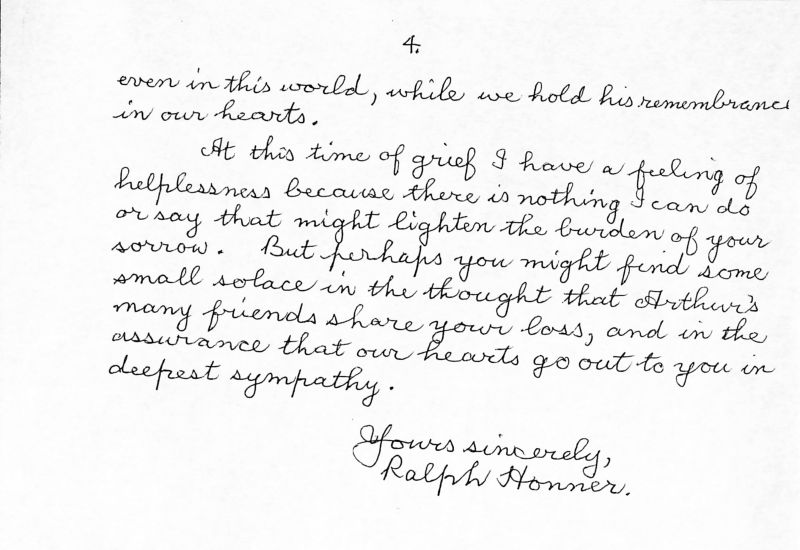 4.
even in this world, while we hold his remembrance
in our hearts.
At this time of grief I have a feeling of
helplessness because there is nothing I can do
or say that might lighten the burden of your
sorrow. But perhaps you might find some
small solace in the thought that Arthur's
many friends share your loss, and in the
assurance that our hearts go out to you in
deepest sympathy.
Yours sincerely,
Ralph Honner.